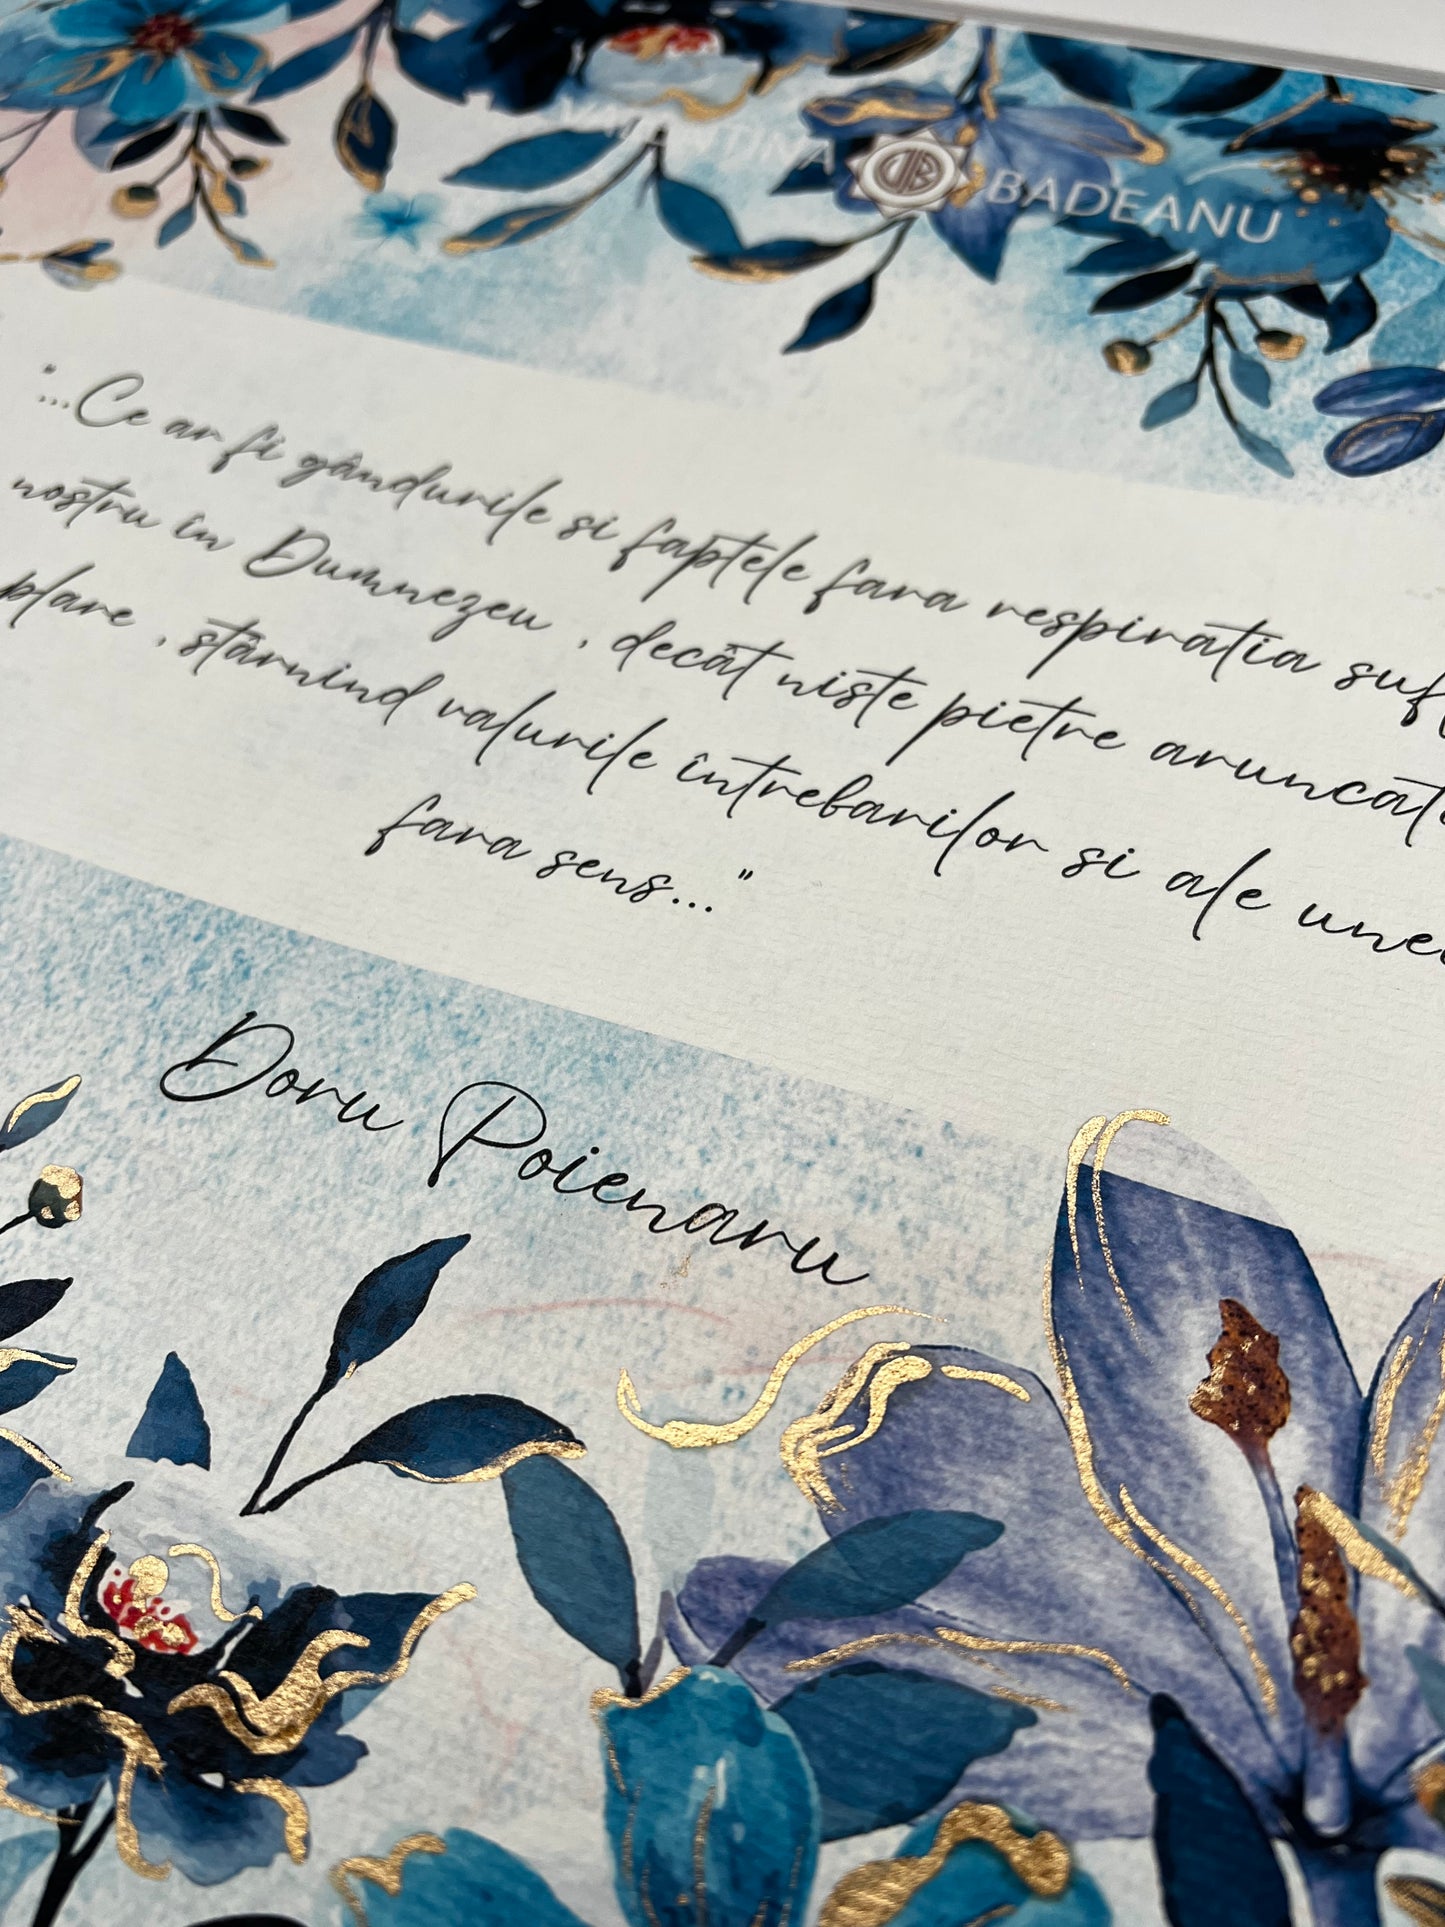 DB BADEANU
"...Ce ar fi gândurile si faptele fara respiratia
nostru în Dumnezeu , decât niste pietre
plare , stârnind valurile întrebarilor si ale
fara sens..."
Doru Poienaru